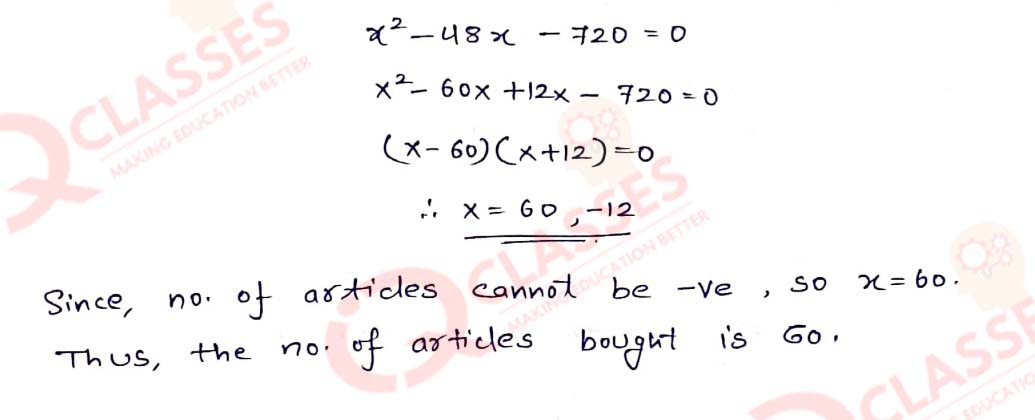 x² - 48x - 720 = 0
x² - 60x + 12x - 720 = 0
(x - 60)(x + 12) = 0
∴ x = 60, -12
Since, no. of articles cannot be -ve, so x = 60.
Thus, the no. of articles bought is 60.
CLASSES
MAKING EDUCATION BETTER
CLASSES
MAKING EDUCATION BETTER
CLASSE
EDUCATIO